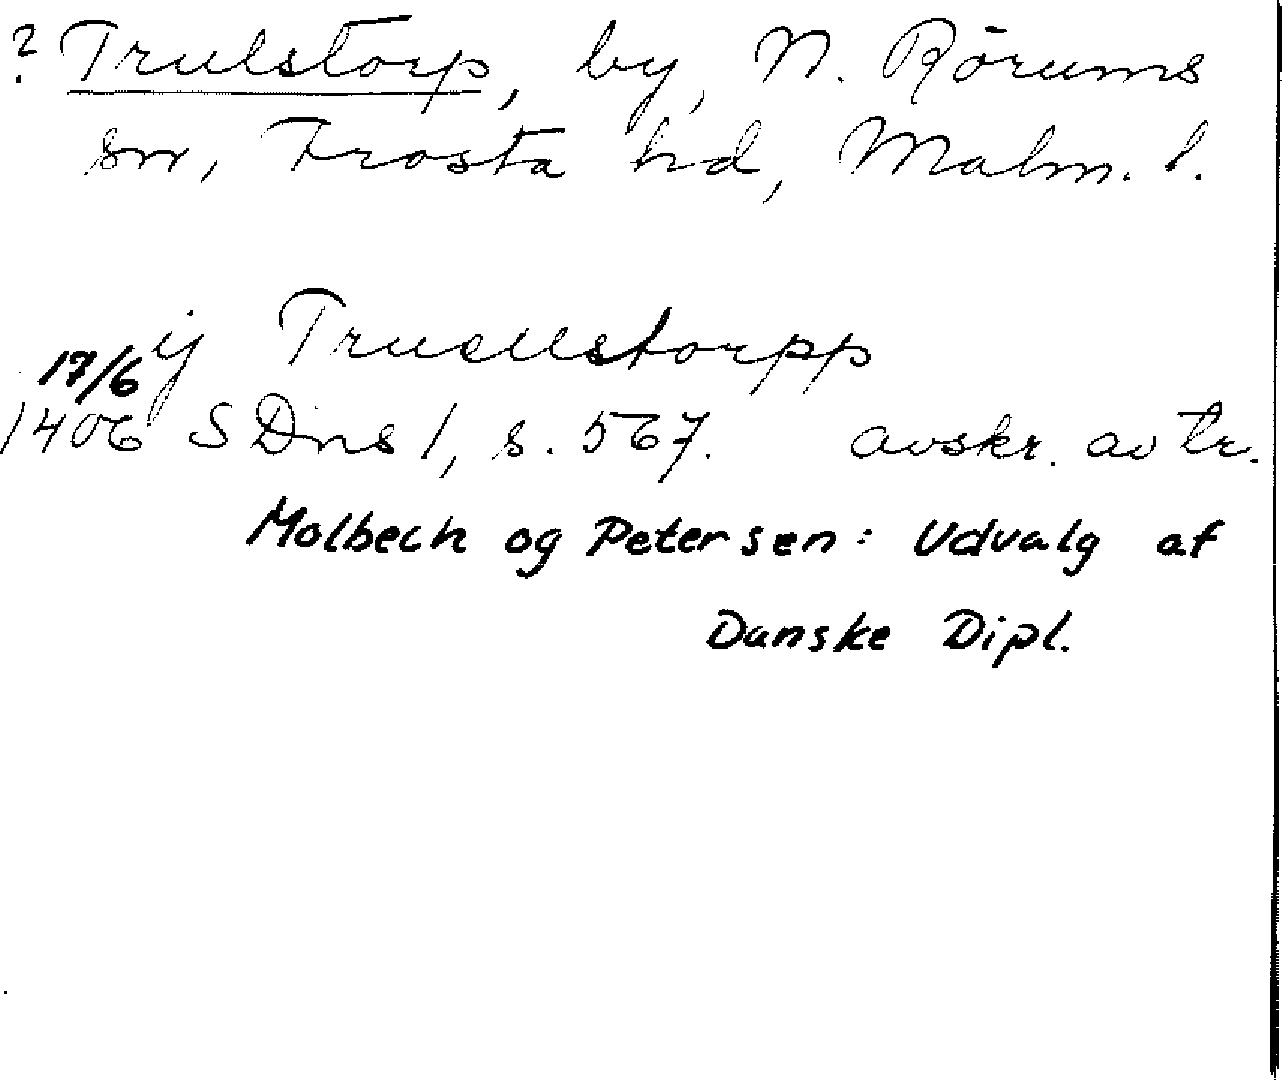 ? Trulstorp, by, N. Rörums
sn, Frosta hd, Malm. l.
ij Truellstorpp
17/6
1406 SDns 1, s. 567. avskr. av tr.
Molbech og Petersen: Udvalg af
Danske Dipl.